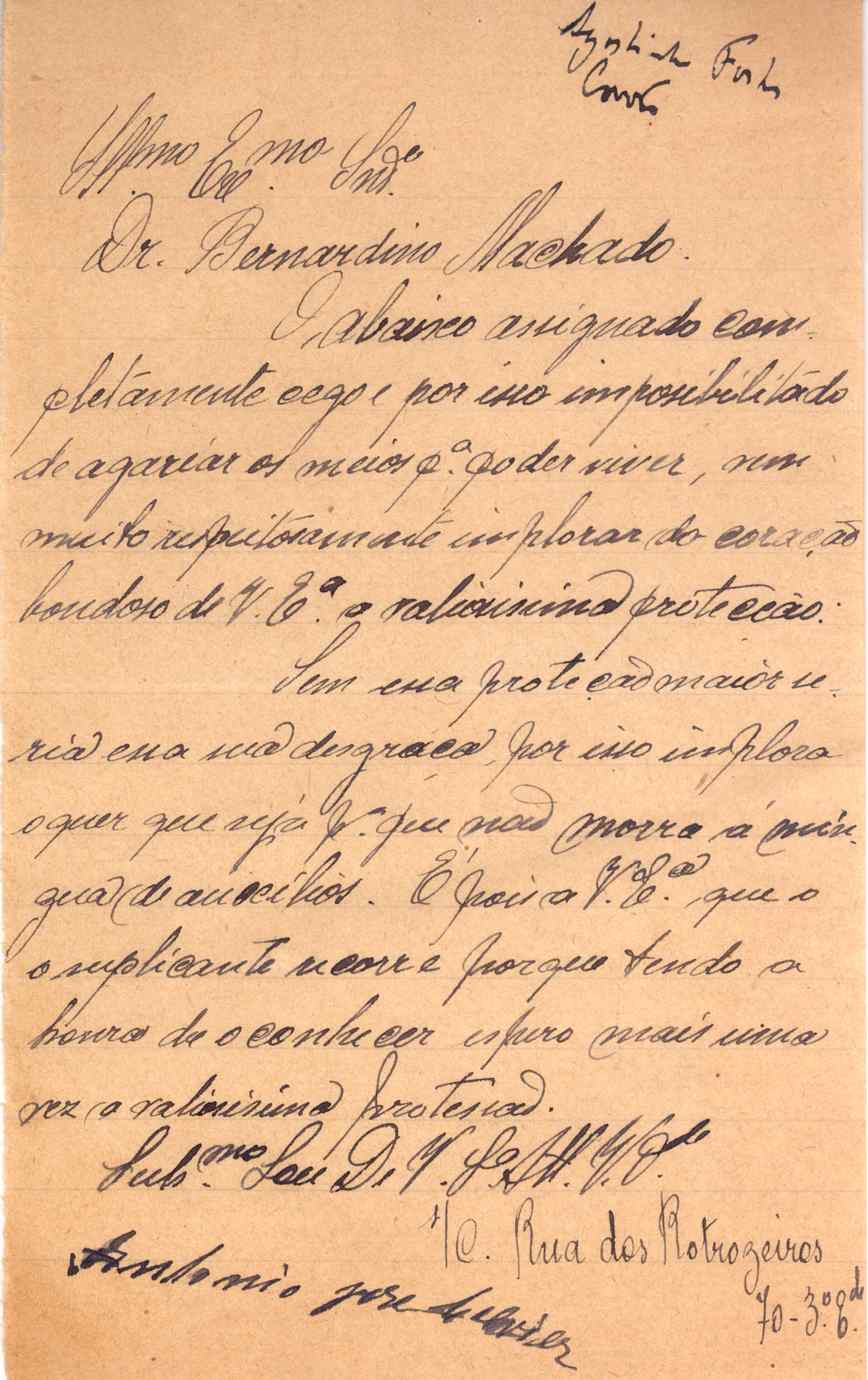 Agostinho Fortes
Ill.mo Exc.mo Snr.
Dr. Bernardino Machado.
O abaixo assignado com-
pletamente cego e por isso imposibilitado
de agariar os meios p.ª poder viver, vem
muito respeitosamente implorar do coração
bondoso de V. E.ª a valiosisima protecção.
Sem essa proteção maior se-
ria essa sua desgraça, por isso implora
o quer que seja p.ª que não morra á min-
gua de auxilios. É pois a V. E.ª que o
o suplicante recorre porque tendo a
honra de o conhecer espero mais uma
vez a valiosisima protesão.
De V.
S/C. Rua dos Rotrozeiros
Antonio José
70-3.º E.do